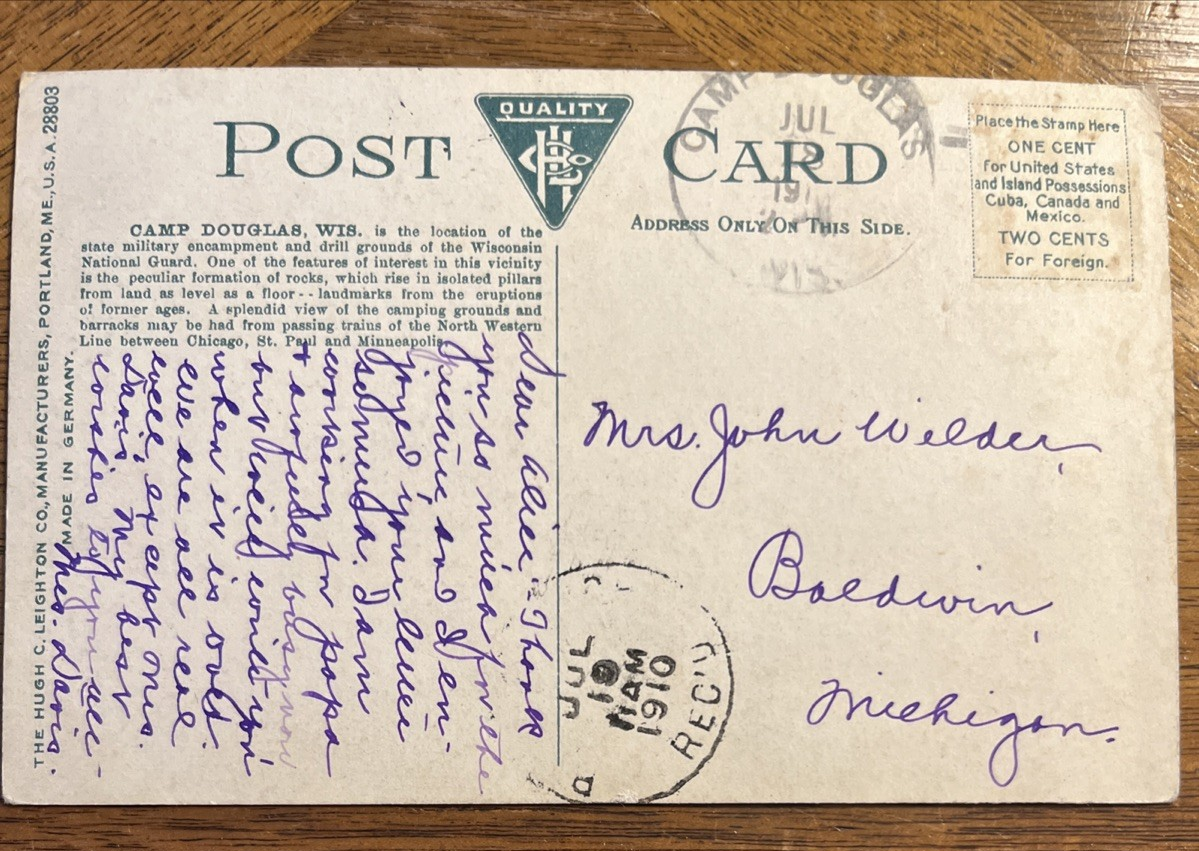 THE HUGH C. LEIGHTON CO., MANUFACTURERS, PORTLAND, ME., U.S.A. 28803
MADE IN GERMANY.
POST CARD
QUALITY
CAMP DOUGLAS
JUL
191
CAMP DOUGLAS, WIS. is the location of the
state military encampment and drill grounds of the Wisconsin
National Guard. One of the features of interest in this vicinity
is the peculiar formation of rocks, which rise in isolated pillars
from land as level as a floor -- landmarks from the eruptions
of former ages. A splendid view of the camping grounds and
barracks may be had from passing trains of the North Western
Line between Chicago, St. Paul and Minneapolis.
ADDRESS ONLY ON THIS SIDE.
Place the Stamp Here
ONE CENT
For United States
and Island Possessions
Cuba, Canada and
Mexico.
TWO CENTS
For Foreign.
Dear Alice - Thank
you so much for the
picture, and I en-
joyed your letter
so much. I am
working for papa
& awfully busy now
but will write you
when it is over.
we are all real
well except Ms.
Davis. My best
wishes to you all -
Mrs. Davis.
Mrs. John Wilder,
Baldwin,
Michigan.
JUL
19
11 AM
1910
REC'D